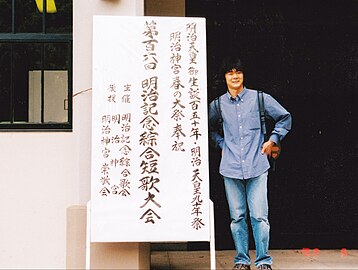 明治天皇御生誕百五十年・明治天皇九十年祭
明治神宮春の大祭奉祝
第百六回 明治記念綜合短歌大会
主催 明治記念綜合歌会
明治神宮
後援 明治神宮崇敬会